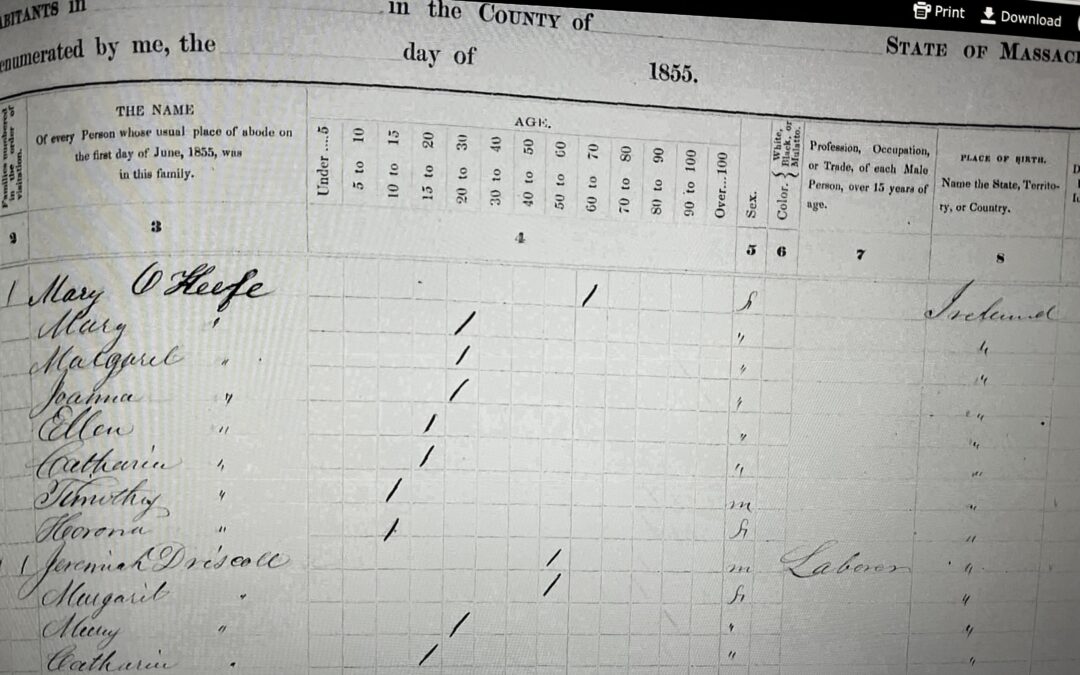 Print Download
ABITANTS in in the COUNTY of
enumerated by me, the day of 1855. STATE OF MASSAC
Families numbered in the order of visitation.
THE NAME
Of every Person whose usual place of abode on
the first day of June, 1855, was
in this family.
AGE.
Under ....5
5 to 10
10 to 15
15 to 20
20 to 30
30 to 40
40 to 50
50 to 60
60 to 70
70 to 80
80 to 90
90 to 100
Over...100
Sex.
Color. { White, Black, or Mulatto.
Profession, Occupation,
or Trade, of each Male
Person, over 15 years of
age.
PLACE OF BIRTH.
Name the State, Territo-
ry, or Country.
2 3 4 5 6 7 8
1 Mary O Keefe / f Ireland
Mary " / " "
Margaret " / " "
Joanna " / " "
Ellen " / " "
Catharin " / " "
Timothy " / m "
Honora " / f "
1 1 Jeremiah Driscoll / m Laborer "
Margaret " / f "
Mary " / " "
Catharin " / " "